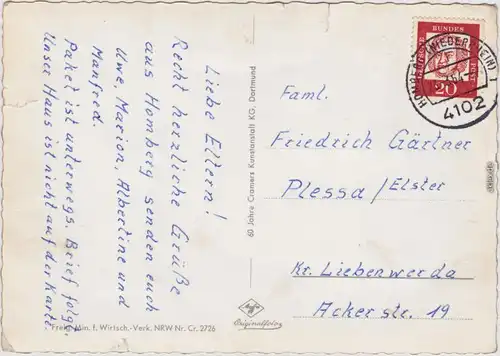 Liebe Eltern!
Recht herzliche Grüße
aus Homberg senden euch
Uwe, Marion, Albertine und
Manfred.
Paket ist unterwegs. Brief folgt.
Unser Haus ist nicht auf der Karte.
Freig. Min. f. Wirtsch.-Verk. NRW Nr. Cr. 2726
60 Jahre Cramers Kunstanstalt KG, Dortmund
Agfa
Originalfoto
DEUTSCHE BUNDESPOST
20
HOMBERG (NIEDERRHEIN)
4102
Faml.
Friedrich Gärtner
Plessa/Elster
Kr. Liebenwerda
Ackerstr. 19